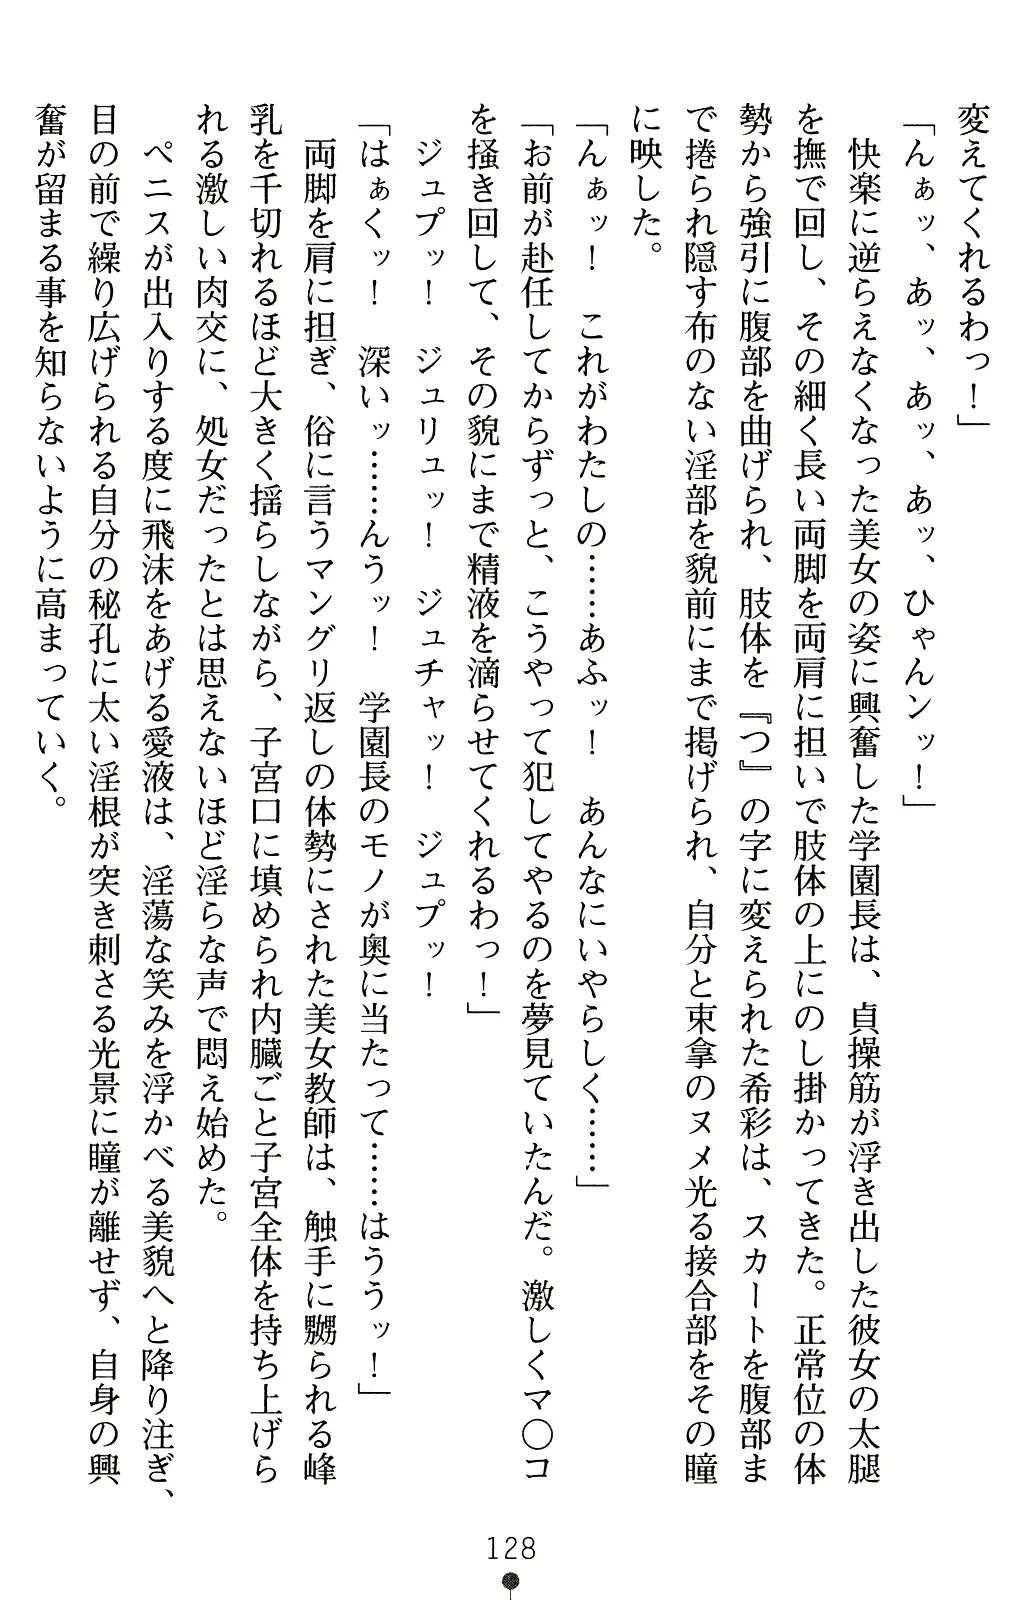 変えてくれるわっ！」
「んぁッ、あッ、あッ、あッ、ひゃんンッ！」
快楽に逆らえなくなった美女の姿に興奮した学園長は、貞操筋が浮き出した彼女の太腿
を撫で回し、その細く長い両脚を両肩に担いで肢体の上にのし掛かってきた。正常位の体
勢から強引に腹部を曲げられ、肢体を『つ』の字に変えられた希彩は、スカートを腹部ま
で捲られ隠す布のない淫部を貌前にまで掲げられ、自分と束拿のヌメ光る接合部をその瞳
に映した。
「んぁッ！　これがわたしの……あふッ！　あんなにいやらしく……」
「お前が赴任してからずっと、こうやって犯してやるのを夢見ていたんだ。激しくマ〇コ
を掻き回して、その貌にまで精液を滴らせてくれるわっ！」
ジュプッ！　ジュリュッ！　ジュチャッ！　ジュプッ！
「はぁくッ！　深いッ……んうッ！　学園長のモノが奥に当たって……はううッ！」
両脚を肩に担ぎ、俗に言うマングリ返しの体勢にされた美女教師は、触手に嬲られる峰
乳を千切れるほど大きく揺らしながら、子宮口に填められ内臓ごと子宮全体を持ち上げら
れる激しい肉交に、処女だったとは思えないほど淫らな声で悶え始めた。
ペニスが出入りする度に飛沫をあげる愛液は、淫蕩な笑みを浮かべる美貌へと降り注ぎ、
目の前で繰り広げられる自分の秘孔に太い淫根が突き刺さる光景に瞳が離せず、自身の興
奮が留まる事を知らないように高まっていく。
128